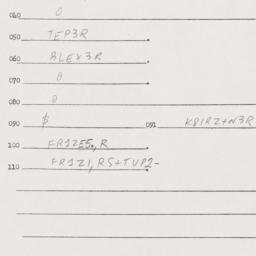 040 0
050 TEP3R
060 BLEX3R
070 0
080 0
090 $ 091 K81RZ+N3R
100 FR1ZE5., R
110 FR1Z1, RS+TUP2-